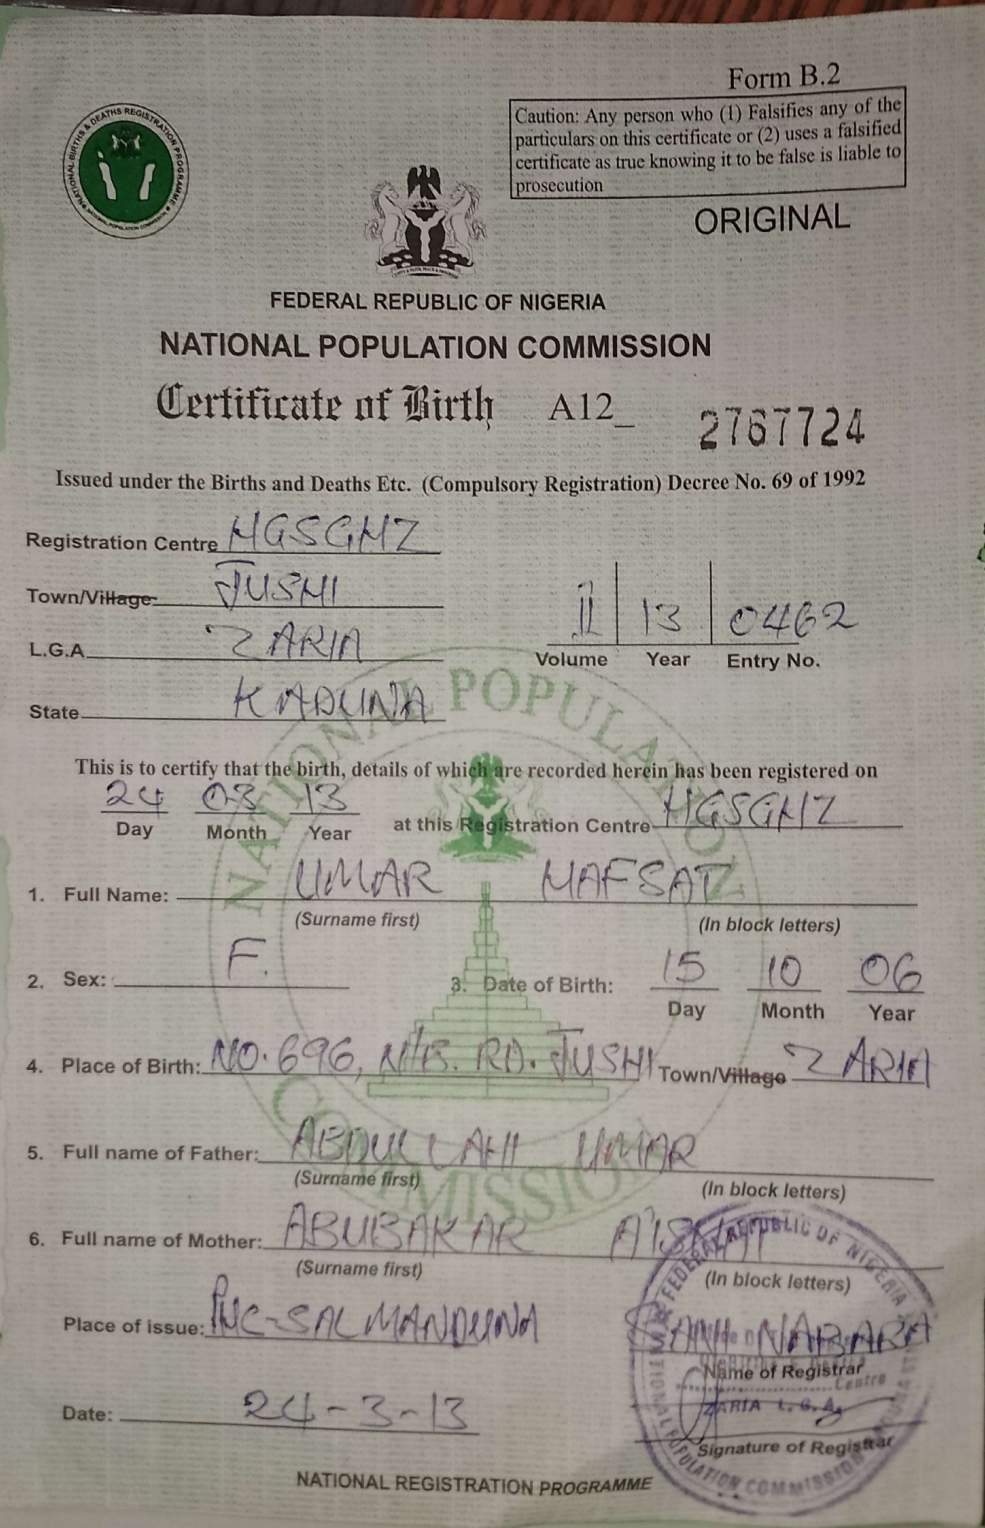 Form B.2
Caution: Any person who (1) Falsifies any of the
particulars on this certificate or (2) uses a falsified
certificate as true knowing it to be false is liable to
prosecution
ORIGINAL
FEDERAL REPUBLIC OF NIGERIA
NATIONAL POPULATION COMMISSION
Certificate of Birth A12_ 2767724
Issued under the Births and Deaths Etc. (Compulsory Registration) Decree No. 69 of 1992
Registration Centre HGSGHZ
Town/Village: JUSHI
L.G.A ZARIA
11 13 0462
Volume Year Entry No.
State KADUNA
This is to certify that the birth, details of which are recorded herein has been registered on
24 03 13
Day Month Year at this Registration Centre HGSGHZ
1. Full Name: UMAR HAFSAT
(Surname first) (In block letters)
2. Sex: F. 3. Date of Birth: 15 10 06
Day Month Year
4. Place of Birth: NO. 696, RD. JUSHI Town/Village ZARIA
5. Full name of Father: ABDULLAHI UMAR
(Surname first) (In block letters)
6. Full name of Mother: ABUBAKAR A'ISHAT
(Surname first) (In block letters)
Place of issue: PHC-SALMANDUNA
NABARA
Name of Registrar
Date: 24-3-13
ZARIA L.G.A
Signature of Registrar
NATIONAL REGISTRATION PROGRAMME